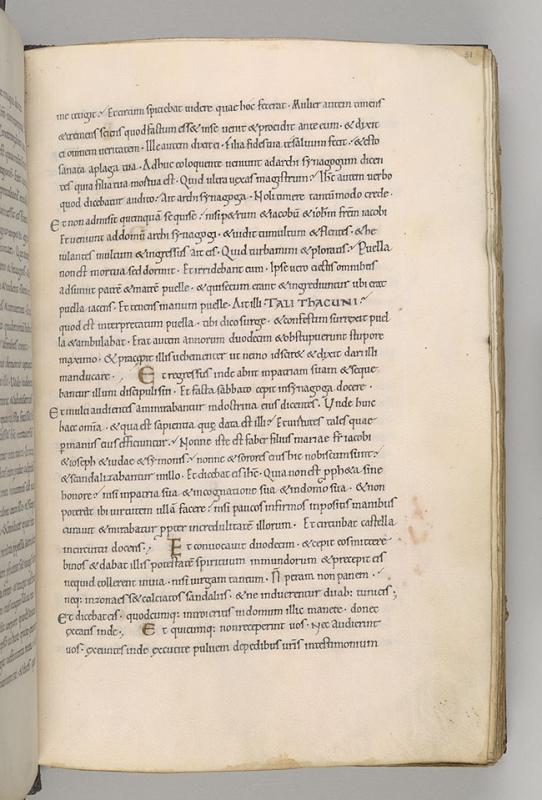 31
me tetigit? Et circum spiciebat uidere quae hoc fecerat. Mulier autem timens
& tremens sciens quod factum ess& in se uenit & procidit ante eum. & dixit
ei omnem ueritatem. Ille autem dixit ei. Filia fides tua te saluum fecit. & esto
sanata a plaga tua. Adhuc eo loquente ueniunt ad archi synagogum dicen
tes quia filia tua mortua est. Quid ultra uexas magistrum? Ihc autem uerbo
quod dicebatur audito. Ait archi synagogo. Noli timere tantum modo crede.
Et non admisit quenquam se qui se? nisi p&rum & iacobum & iohm frem iacobi
Et ueniunt ad domum archi synagogi. & uidit tumultum & flentes. & he
iulantes multum & ingressus ait eis. Quid turbamini & ploratis? Puella
non est mortua sed dormit. Et irridebant eum. Ipse uero eiectis omnibus
adsumit patre & matre puelle. & qui secum erant & ingrediuntur ubi erat
puella iacens. Et tenens manum puelle. Ait illi TALI THACUMI?
quod est interpretatum puella. tibi dico surge. & confestim surrexit puel
la & ambulabat. Erat autem annorum duodecim & obstupuerunt stupore
maximo. & praecepit illis uehementer ut nemo id scir& & dixit dari illi
manducare. Et egressus inde abiit in patriam suam & seque
bantur illum discipuli sui. Et facta sabbato cepit in synagoga docere.
Et multi audientes ammirabantur in doctrina eius dicentes. Unde huic
haec omia. & qua est sapientia quę data est illi? Et uirtutes tales quae
p manus eius efficiuntur. Nonne iste est faber filius mariae fr iacobi
& ioseph & iudae & symonis? nonne & sorores eius hic nobiscum sunt?
& scandalizabantur in illo. Et dicebat eis ihc. Quia non est ppheta sine
honore? nisi in patria sua & in cognatione sua & in domo sua. & non
poterat ibi uirtutem ullā facere? nisi paucos infirmos inpositis manibus
curauit & mirabatur ppter incredulitatē illorum. Et circuibat castella
in circuitu docens. Et conuocauit duodecim. & cepit eos mittere
binos & dabat illis potestatē spirituum inmundorum & precepit eis
ne quid tollerent in uia. nisi uirgam tantum. N peram non panem.
neq: in zona aes & calciatos sandaliis. & ne induerentur duab: tunicis;
Et dicebat eis. quodcumq: introieritis in domum illic manete. donec
exeatis inde; Et quicumq: non receperint uos. Nec audierint
uos. exeuntes inde excutite puluem de pedibus uris in testimonium